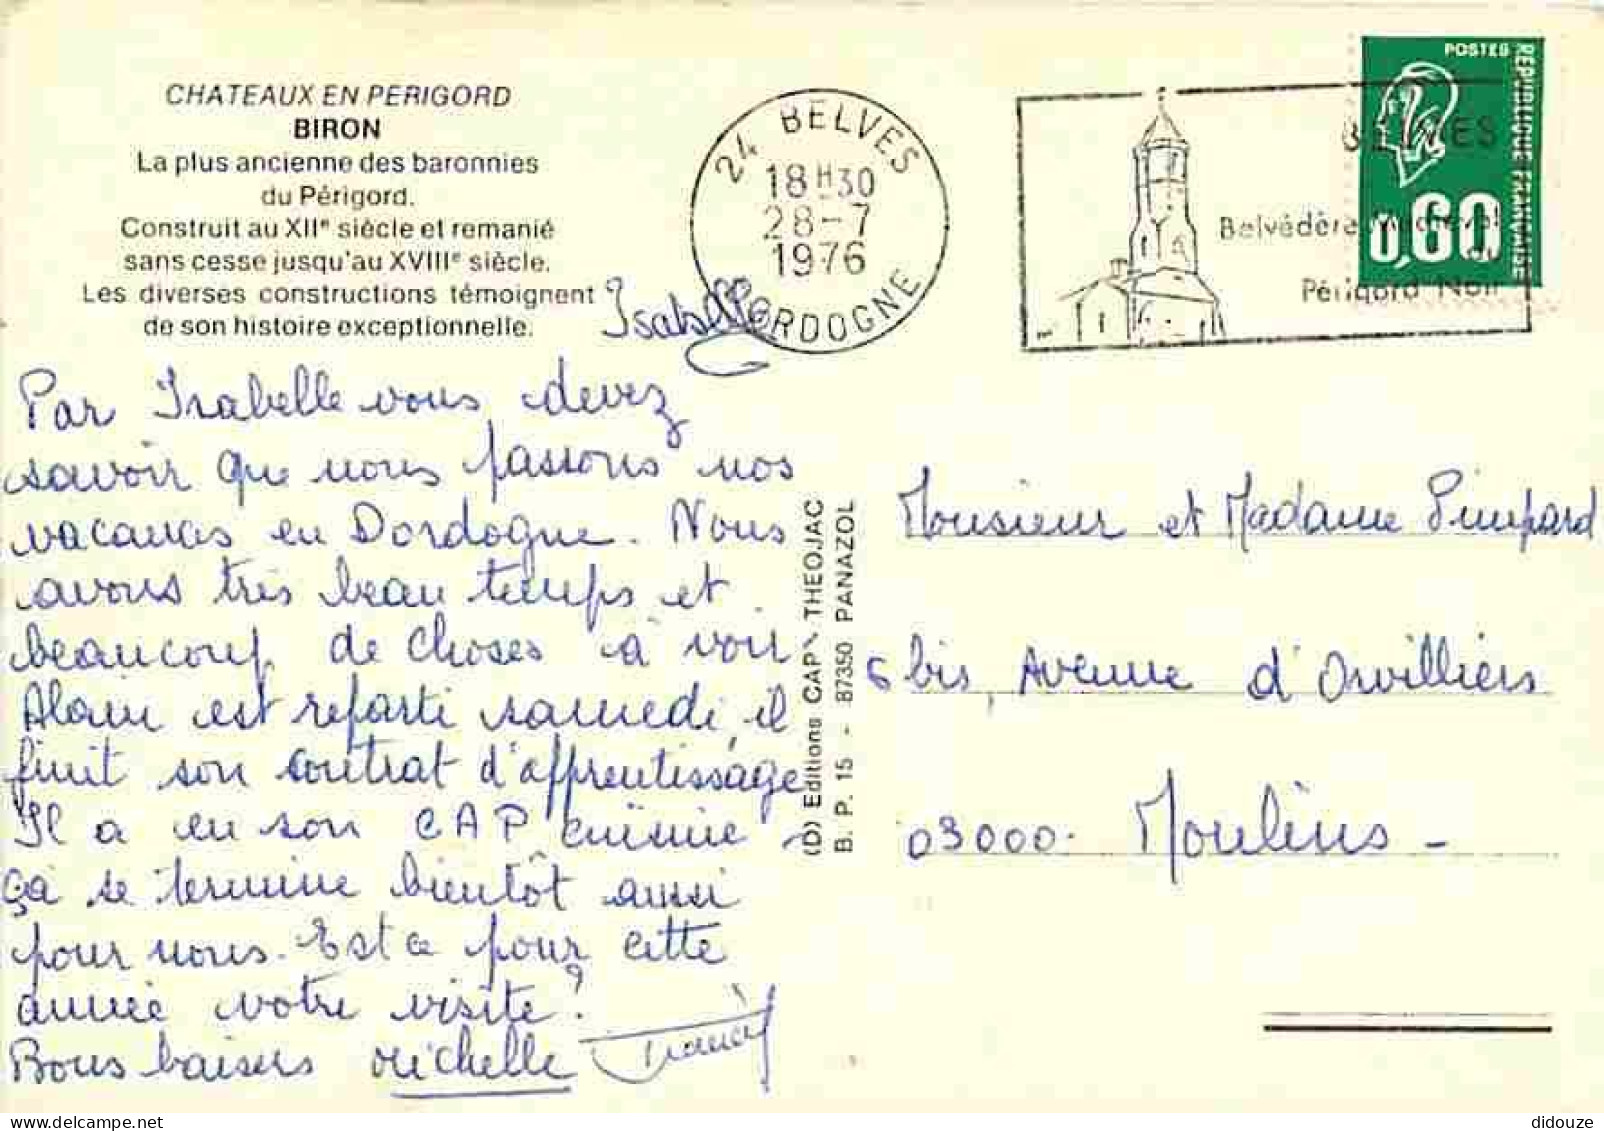 CHATEAUX EN PERIGORD
BIRON
La plus ancienne des baronnies
du Périgord.
Construit au XIIe siècle et remanié
sans cesse jusqu'au XVIIIe siècle.
Les diverses constructions témoignent
de son histoire exceptionnelle.
Isabelle
Par Isabelle vous devez
savoir que nous passons nos
vacances en Dordogne. Nous
avons très beau temps et
beaucoup de choses à voir
Alain est reparti samedi, il
finit son contrat d'apprentissage
Il a eu son CAP cuisine,
ça se termine bientôt aussi
pour nous. Est ce pour cette
année votre visite?
Bons baisers Michelle
Francis
(D) Editions CAP-THEOJAC
B. P. 15 - 87350 PANAZOL
24 BELVES
18H30
28-7
1976
DORDOGNE
BELVES
Belvédère
Périgord Noir
POSTES
REPUBLIQUE FRANCAISE
0,60
Monsieur et Madame Pimpard
6 bis, Avenue d'Orvilliers
03000. Moulins -
didouze